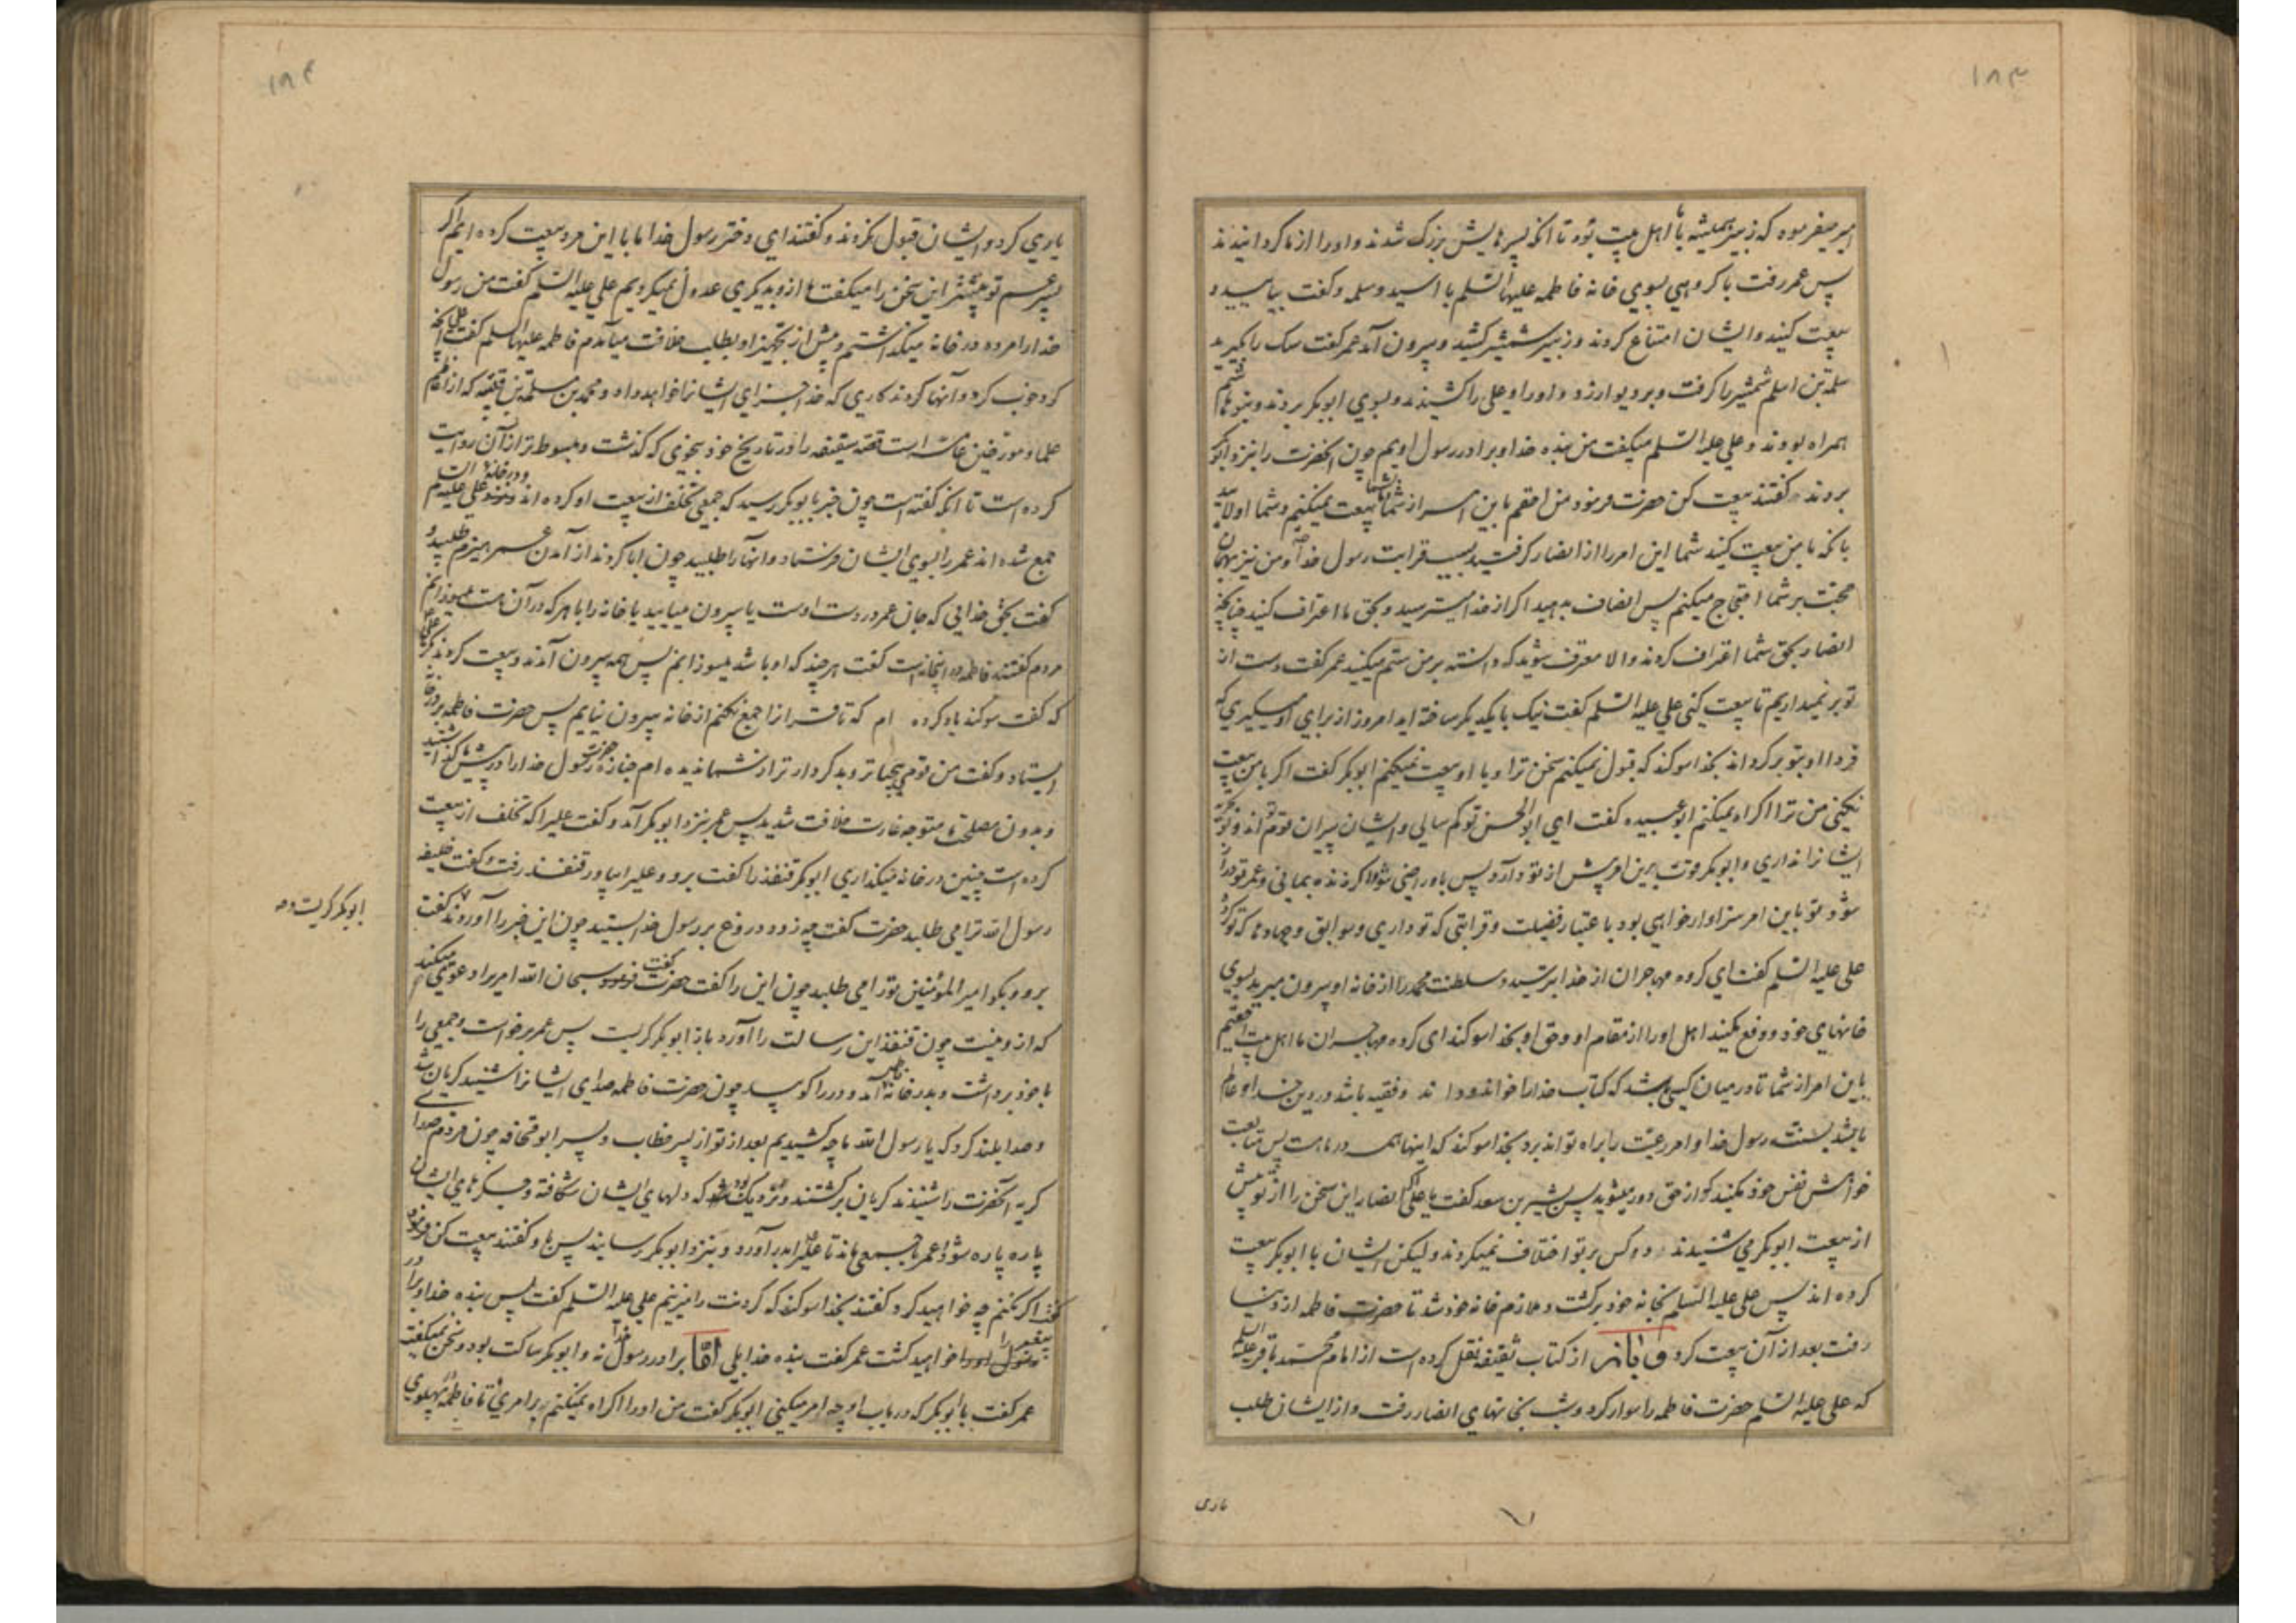 ۱۸۳
امیر میفرمود که زبیر همیشه با اهل بیت بود تا آنکه پسرهایش بزرک شدند و او را از ما کردانیدند
پس عمر رفت با کروهی بسوی خانه فاطمه علیها السّلم با اسید و سلمه و کفت بیایید و
بیعت کنید و ایشان امتناع کردند و زبیر شمشیر کشید و بیرون آمد عمر کفت سک را بکیرید
سلمة بن اسلم شمشیر را کرفت و بر دیوار زد و او را و علی را کشیدند و بسوی ابوبکر بردند و بنو هاشم
همراه بودند و علی علیه السّلم میکفت من بنده خدا و برادر رسول اویم چون آنحضرت را بنزد ابوبکر
بردند کفتند بیعت کن حضرت فرمود من احقم باین امر از شما با شما بیعت نمیکنم و شما اولایید
بانکه با من بیعت کنید شما این امر را از انصار کرفتید بسبب قرابت رسول خدا و من نیز بهمان
حجّت بر شما احتجاج میکنم پس انصاف بدهید اکر از خدا میترسید و بحق ما اعتراف کنید چنانچه
انصار بحق شما اعتراف کردند و الا معترف شوید که دانسته بر من ستم میکنید عمر کفت دست از
تو بر نمیداریم تا بیعت کنی علی علیه السّلم کفت نیک با یکدیکر ساخته اید امروز از برای او میکیری که
فردا او بتو بر کرداند بخدا سوکند که قبول نمیکنم سخن ترا و با او بیعت نمیکنم ابوبکر کفت اکر با من بیعت
نمیکنی من ترا اکراه نمیکنم ابو عبیده کفت ای ابو الحسن تو کم سالی و ایشان پیران قوم تواند و تو تجربه
ایشان را نداری و ابوبکر قوت برین امر بیش از تو دارد پس باو راضی شو و اکر زنده بمانی و عمر تو دراز
شود تو باین امر سزاوار خواهی بود باعتبار فضیلت و قرابتی که تو داری و سوابق و جهادها که تو کرده
علی علیه السّلم کفت ای کروه مهاجران از خدا بترسید و سلطنت محمد را از خانه او بیرون مبرید بسوی
خانهای خود و دفع مکنید اهل او را از مقام او و حق او بخدا سوکند ای کروه مهاجران ما اهل بیت احقّیم
باین امر از شما تا در میان ما کسی باشد که کتاب خدا را خواند و داند و فقیه باشد در دین خدا و عالم
باشد بسنّت رسول خدا و امر رعیّت را براه تواند برد بخدا سوکند که اینها همه در ما هست پس متابعت
خواهش نفس خود مکنید که از حق دور میشوید پس بشیر بن سعد کفت یا علی اکر انصار این سخن را از تو پیش
از بیعت ابوبکر می شنیدند دو کس بر تو اختلاف نمیکردند و لیکن ایشان با ابوبکر بیعت
کرده اند پس علی علیه السّلم بخانه خود برکشت و ملازم خانه خود شد تا حضرت فاطمه از دنیا
رفت بعد از آن بیعت کرد و بازم از کتاب ثقیفه نقل کرده است از امام محمّد باقر علیه السلم
که علی علیه السّلم حضرت فاطمه را سوار کرد و شب بخانهای انصار رفت و از ایشان طلب
یاری
۱۸۴
یاری کرد و ایشان قبول نکردند و کفتند ای دختر رسول خدا ما با این مرد بیعت کرده ایم اکر
پسر عم تو پیشتر این سخن را میکفت ما از و بدیکری عدول نمیکردیم علی علیه السّلم کفت من رسول
خدا را مرده در خانه میکذاشتم و پیش از تجهیز او بطلب خلافت میآمدم فاطمه علیها السلم کفت علی آنچه
کرد خوب کرد و آنها کردند کاری که خدا جزای ایشان را خواهد داد و محمد بن مسلم بن قتیبه که از اعاظم
علما و مورّخین عامّه است قصّه سقیفه را در تاریخ خود بنحوی که کذشت و مبسوط تر از آن روایت
کرده است تا انکه کفته است چون خبر بابوبکر رسید که جمعی تخلف از بیعت او کرده اند و در خانه علی علیه السلم
جمع شده اند عمر را بسوی ایشان فرستاد و انها را طلبید چون ابا کردند از آمدن عمر هیزم طلبید و
کفت بحق خدایی که جان عمر در دست اوست یا بیرون میایید یا خانه را با هر که در آن هست میسوزانم
مردم کفتند فاطمه در اینخانه است کفت هر چند که او باشد میسوزانم پس همه بیرون آمدند و بیعت کردند مکر علی
که کفت سوکند یاد کرده ام که تا قرآن را جمع نکنم از خانه بیرون نیایم پس حضرت فاطمه بر در خانه
ایستاد و کفت من قومی بیحیاتر و بدکردارتر از شما ندیده ام جنازه حضرت رسول خدا را در پیش ما کذاشتید
و بدون مصلحت ما متوجه غارت خلافت شدید پس عمر بنزد ابوبکر آمد و کفت علی را که تخلف از بیعت
کرده است چنین در خانه میکذاری ابوبکر قنفذ را کفت برو و علی را بیاور قنفذ رفت و کفت خلیفه
رسول الله ترا می طلبد حضرت کفت چه زود دروغ بر رسول خدا بستید چون این خبر را آوردند کفت
ابوبکر کریست و
برو و بکو امیر المؤمنین تو را می طلبد چون این را کفت حضرت کفت سبحان الله امیری را دعوی میکند
که از و نیست چون قنفذ این رسالت را آورد باز ابوبکر کریست پس عمر برخواست و جمعی را
با خود برداشت و بدر خانه فاطمه آمد و در را کوبید چون حضرت فاطمه صدای ایشان را شنید کریان شد
و صدا بلند کرد که یا رسول الله ما چه کشیدیم بعد از تو از پسر خطاب و پسر ابو قحافه چون مردم صدای
کریه آنحضرت را شنیدند کریان برکشتند و نزدیک بود که دلهای ایشان شکافته و جکرهای ایشان
پاره پاره شود و عمر با جمعی ماند تا علی را بدر آورد و بنزد ابوبکر رسانیدند پس باو کفتند بیعت کن فرمود
اکر نکنم چه خواهید کرد کفتند بخدا سوکند که کردنت را میزنیم علی علیه السّلم کفت پس بنده خدا و برادر
پیغمبر را خواهید کشت عمر کفت بنده خدا بلی امّا برادر رسول خدا نه و ابوبکر ساکت بود و سخن نمیکفت
عمر کفت با ابوبکر که در باب او چه امر میکنی ابوبکر کفت من او را اکراه نمیکنم بر امری تا فاطمه در پهلوی